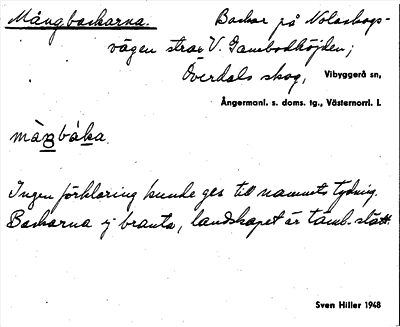 Mångbackarna. Backar på Nolaskogs-
vägen strax V. Gambodhöjden;
Överdals skog, Vibyggerå sn,
Ångermanl. s. doms. tg., Västernorrl. l.
màŋbáka
Ingen förklaring kunde ges till namnets tydning.
Backarna ej branta, landskapet är täml. slätt.
Sven Hiller 1948